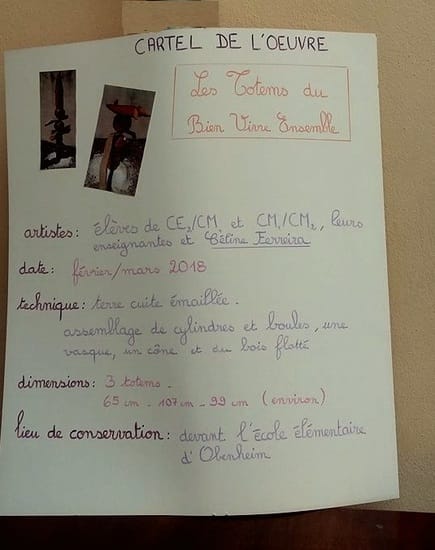 CARTEL DE L'OEUVRE
Les Totems du
Bien Vivre Ensemble
artistes: élèves de CE2/CM1 et CM1/CM2, leurs
enseignantes et Céline Ferreira
date: février/mars 2018
technique: terre cuite émaillée.
assemblage de cylindres et boules, une
vasque, un cône et du bois flotté
dimensions: 3 totems.
65 cm - 107 cm - 99 cm (environ)
lieu de conservation: devant l'école élémentaire
d'Obenheim